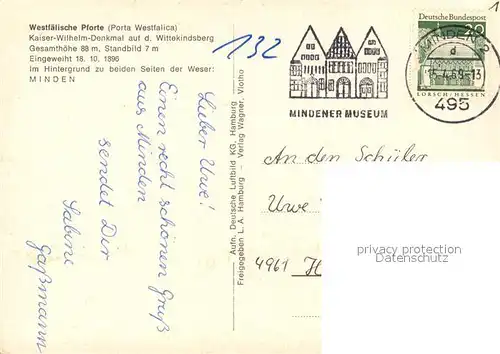 Westfälische Pforte (Porta Westfalica)
Kaiser-Wilhelm-Denkmal auf d. Wittekindsberg
Gesamthöhe 88 m, Standbild 7 m
Eingeweiht 18. 10. 1896
Im Hintergrund zu beiden Seiten der Weser:
MINDEN
132
1
Deutsche Bundespost
20
LORSCH/HESSEN
MINDEN
d
15.4.69-13
495
MINDENER MUSEUM
Lieber Uwe!
Einen recht schönen Gruß
aus Minden
sendet Dir
Sabine
Gaßmann
Aufn. Deutsche Luftbild KG, Hamburg
Freigegeben L. A. Hamburg - Verlag Wagner, Vlotho
An den Schüler
Uwe
4961 H
profesyonel dizin